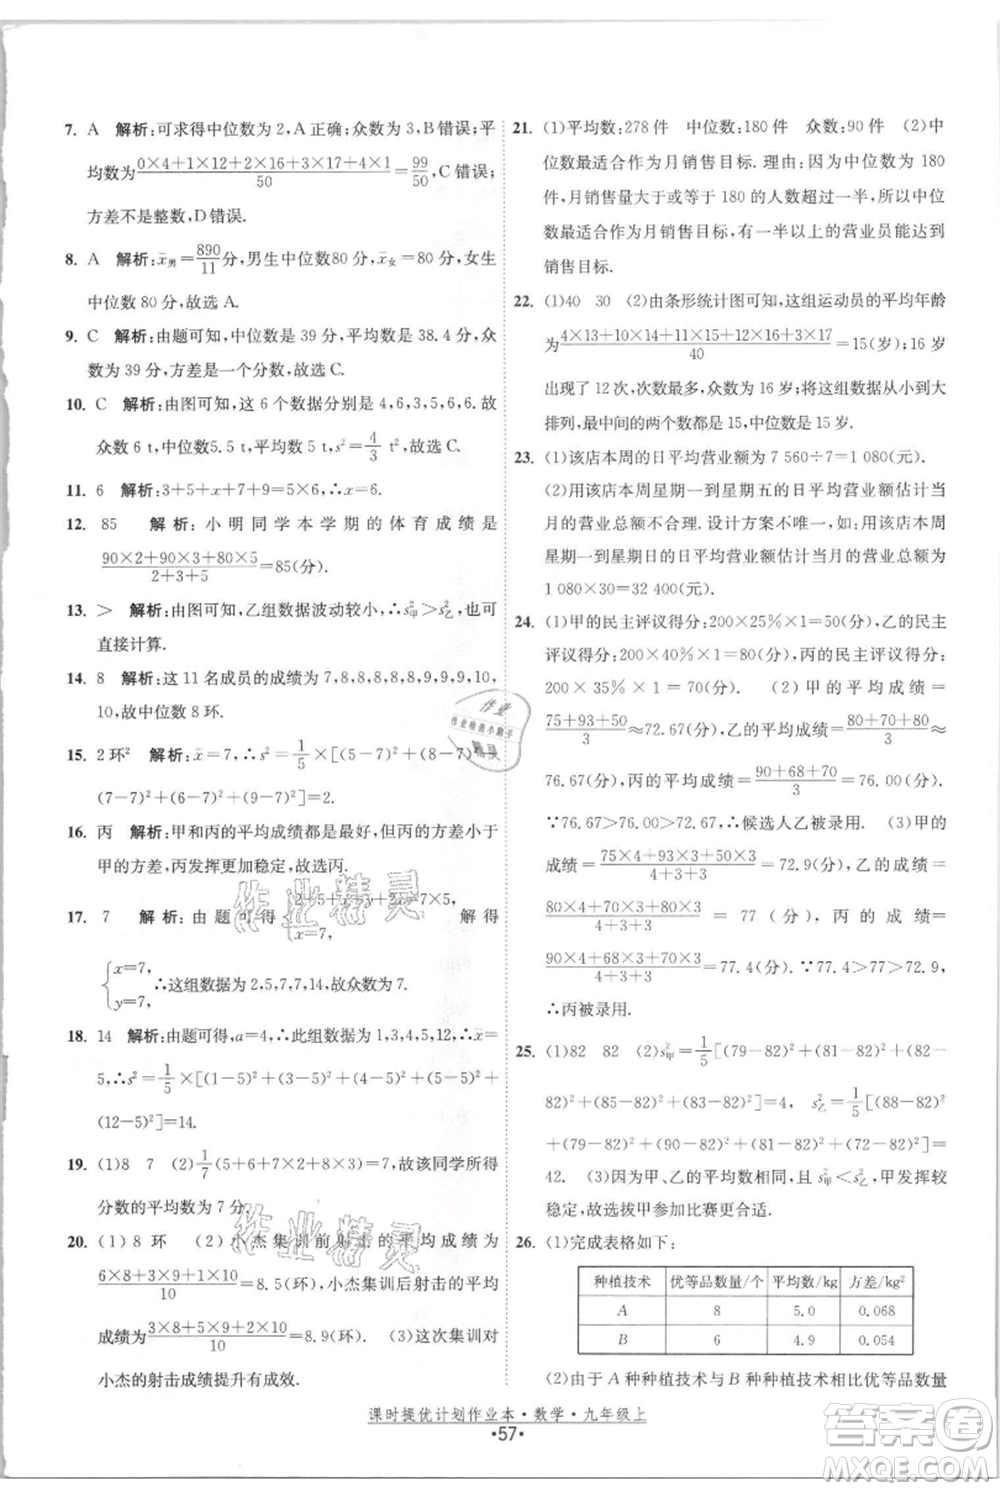 7. A 解析:可求得中位数为 2,A 正确;众数为 3,B 错误;平
均数为(0×4+1×12+2×16+3×17+4×1)/50=99/50,C 错误;
方差不是整数,D 错误.
8. A 解析:x̄男=890/11分,男生中位数80分,x̄女=80分,女生
中位数 80 分,故选 A.
9. C 解析:由题可知,中位数是 39 分,平均数是 38.4 分,众
数为 39 分,方差是一个分数,故选 C.
10. C 解析:由图可知,这 6 个数据分别是 4,6,3,5,6,6.故
众数 6 t,中位数5.5 t,平均数 5 t,s²=4/3 t²,故选 C.
11. 6 解析:3+5+x+7+9=5×6⇒x=6.
12. 85 解析:小明同学本学期的体育成绩是
(90×2+90×3+80×5)/(2+3+5)=85(分).
13. > 解析:由图可知,乙组数据波动较小,∴s²甲>s²乙,也可
直接计算.
14. 8 解析:这 11 名成员的成绩为 7,8,8,8,8,9,9,9,
10,故中位数 8 环.
15. 2 环² 解析:x̄=7,s²=1/5×[(5-7)²+(8-7)²+
(7-7)²+(6-7)²+(9-7)²]=2.
16. 丙 解析:甲和丙的平均成绩都是最好,但丙的方差小于
甲的方差,丙发挥更加稳定,故选丙.
17. 7 解析:由题可得{2+5+x+y+2x=7×5, x=7, 解得
{x=7, y=7, ∴这组数据为 2,5,7,7,14,故众数为 7.
18. 14 解析:由题可得,a=4,∴此组数据为 1,3,4,5,12,∴x̄=
5,∴s²=1/5×[(1-5)²+(3-5)²+(4-5)²+(5-5)²+
(12-5)²]=14.
19. (1)8 7 (2)1/7(5+6+7+8+7+8+8)=7,故该同学所得
分数的平均数为 7 分.
20. (1)8 环 (2)小杰集训前射击的平均成绩为
(6×8+3×9+1×10)/10=8.5(环),小杰集训后射击的平均
成绩为(3×8+5×9+2×10)/10=8.9(环). (3)这次集训对
小杰的射击成绩提升有成效.
21. (1)平均数:278 件 中位数:180 件 众数:90 件 (2)中
位数最适合作为月销售目标. 理由:因为中位数为 180
件,月销售量大于或等于 180 的人数超过一半,所以中位
数最适合作为月销售目标,有一半以上的营业员能达到
销售目标.
22. (1)40 30 (2)由条形统计图可知,这组运动员的平均年龄
为(4×13+10×14+11×15+12×16+3×17)/40=15(岁);16岁
出现了 12 次,次数最多,众数为 16 岁;将这组数据从小到大
排列,最中间的两个数都是 15,中位数为 15岁.
23. (1)该店本周的日平均营业额为 7 560÷7=1 080(元).
(2)用该店本周星期一到星期五的日平均营业额估计当
月的营业总额不合理. 设计方案不唯一,如:用该店本周
星期一到星期日的日平均营业额估计当月的营业总额为
1 080×30=32 400(元).
24. (1)甲的民主评议得分:200×25%×1=50,乙的民主
评议得分:200×40%×1=80,丙的民主评议得分:
200×35%×1=70. (2)甲的平均成绩=
(75+93+50)/3≈72.67(分),乙的平均成绩=(80+70+80)/3≈
76.67(分),丙的平均成绩=(90+68+70)/3=76.00(分).
∵76.67>76>72.67,∴候选人乙被录用. (3)甲的
成绩=(75×4+93×3+50×3)/(4+3+3)=72.9(分),乙的成绩=
(80×4+70×3+80×3)/(4+3+3)=77(分),丙的成绩=
(90×4+68×3+70×3)/(4+3+3)=77.4(分). ∵77.4>77>72.9,
∴丙被录用.
25. (1)82 82 (2)s²甲=1/5[(79-82)²+(86-82)²+(82-
82)²+(85-82)²+(83-82)²]=4,s²乙=1/5[(88-82)²+
(79-82)²+(90-82)²+(81-82)²+(72-82)²]=
42. (3)因为甲、乙的平均数相同,且s²甲<s²乙,甲发挥较
稳定,所以派甲参加比赛更合适.
26. (1)完成表格如下:
种植技术 优等品数量/个 平均数/kg 方差/kg²
A 8 5.0 0.068
B 6 4.9 0.054
(2)由于 A 种种植技术与 B 种种植技术相比优等品数量
课时提优计划作业本·数学·九年级上
·57·
作业精灵
作业精灵
答案圈
MXQE.COM